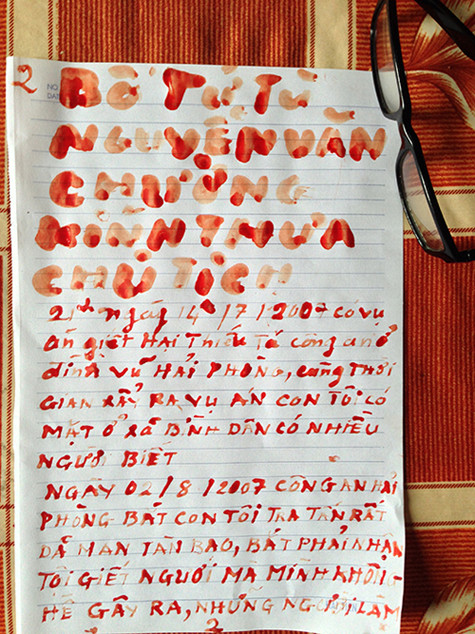 2
BỐ TỬ TÙ
NGUYỄN VĂN
CHƯỞNG
KÍNH THƯA
CHỦ TỊCH
ngày 14/7/2007 có vụ
án giết HẠI Thiếu Tá công an ở
đình VŨ HẢI PHÒNG, cùng THỜI
GIAN XẨY RA VỤ ÁN CON TÔI CÓ
MẶT Ở XÃ BÌNH DÂN CÓ NHIỀU
NGƯỜI BIẾT
NGÀY 02/8/2007 CÔNG AN HẢI
PHÒNG BẮT CON TÔI TRA TẤN RẤT
DÃ MAN TÀN BẠO, BẮT PHẢI NHẬN
TỘI GIẾT NGƯỜI MÀ MÌNH KHÔNG
HỀ GÂY RA, NHỮNG NGƯỜI LÀM
2